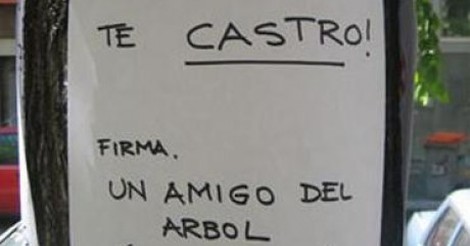 TE CASTRO!
FIRMA.
UN AMIGO DEL
ARBOL